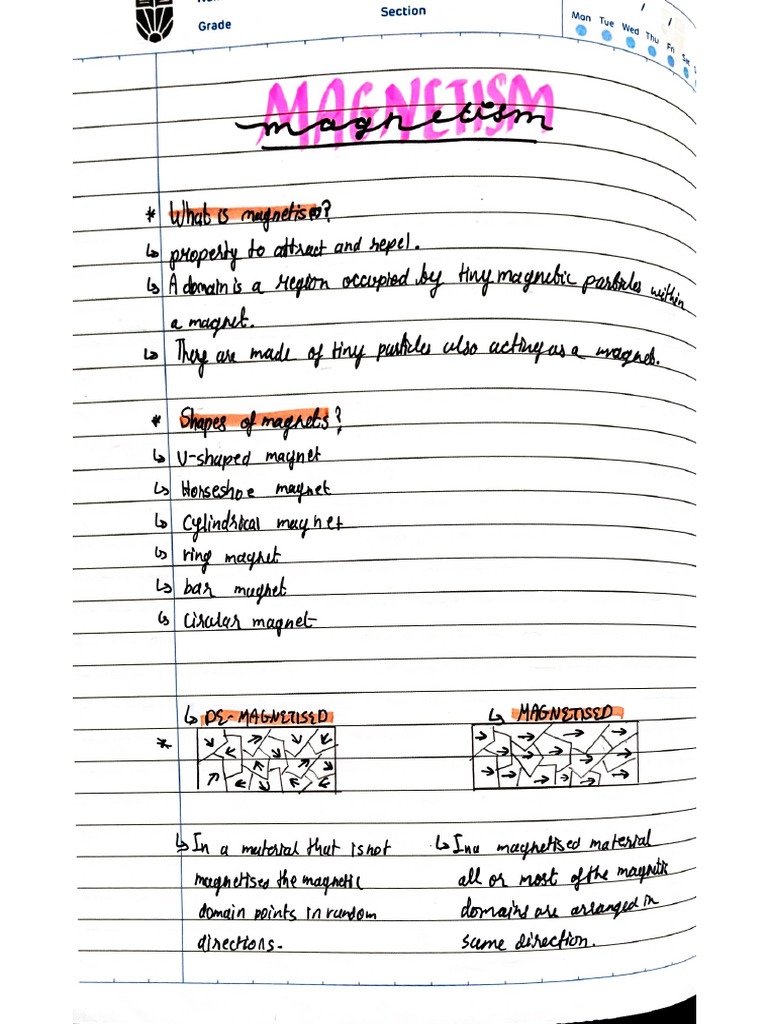 Section
Grade
Mon Tue Wed Thu Fri Sat
/ /
MAGNETISM
magnetism
* What is magnetism?
↳ property to attract and repel.
↳ A domain is a region occupied by tiny magnetic particles within
a magnet.
↳ They are made of tiny particles also acting as a magnet.
* Shapes of magnets?
↳ U-shaped magnet
↳ Horseshoe magnet
↳ Cylindrical magnet
↳ ring magnet
↳ bar magnet
↳ Circular magnet
↳ DE-MAGNETISED
↳ MAGNETISED
*
↳ In a material that is not
magnetises the magnetic
domain points in random
directions.
↳ In a magnetised material
all or most of the magnetic
domains are arranged in
same direction.